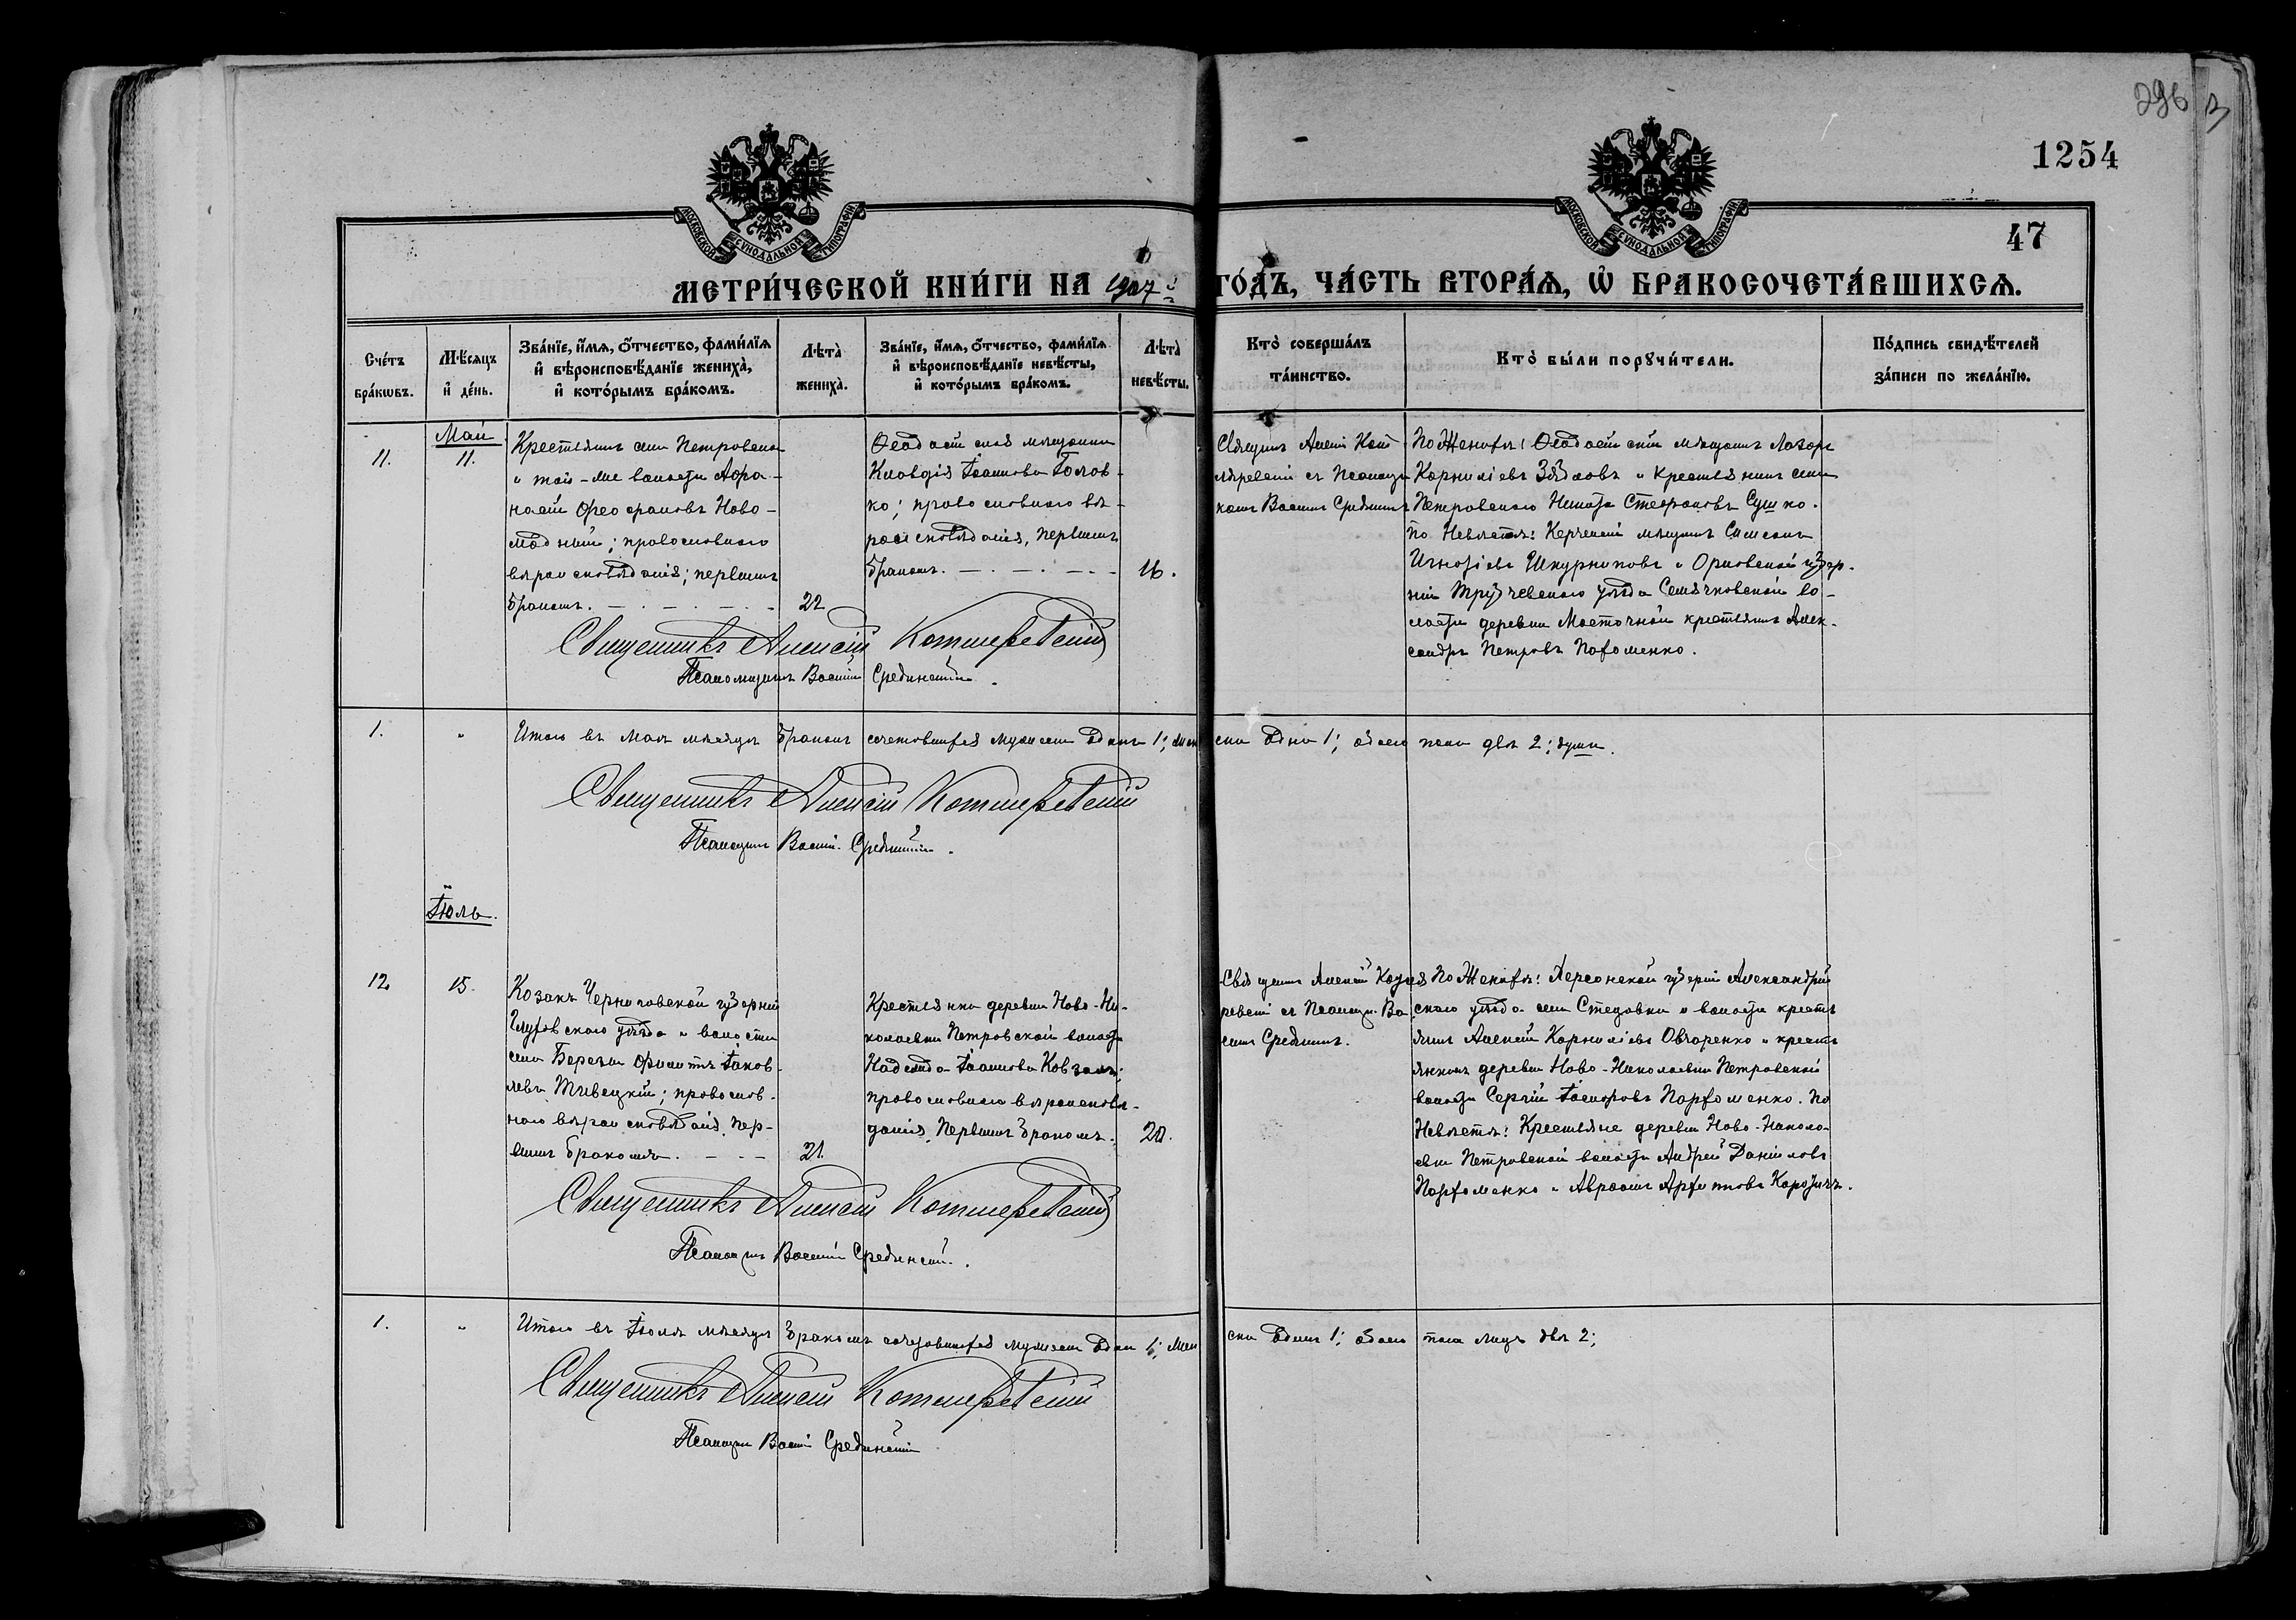 296
1254
47
МОСКОВСКОЙ СѴНОДАЛЬНОЙ ТИПОГРАФІИ
МОСКОВСКОЙ СѴНОДАЛЬНОЙ ТИПОГРАФІИ
МЕТРИ́ЧЕСКОЙ КНИ́ГИ НА 1907 ГО́ДЪ, ЧА́СТЬ ВТОРА́Ѧ, Ѽ БРАКОСОЧЕТА́ВШИХСѦ.
Сче́тъ бра́кѡвъ.
Мѣ́сяцъ и҆ де́нь.
Зва́нїе, и҆́мѧ, ѻ҆́тчество, фами́лїѧ и҆ вѣроисповѣ́данїе жениха̀, и҆ кото́рымъ бра́комъ.
Лѣта̀ жениха̀.
Зва́нїе, и҆́мѧ, ѻ҆́тчество, фами́лїѧ и҆ вѣроисповѣ́данїе невѣ́сты, и҆ кото́рымъ бра́комъ.
Лѣта̀ невѣ́сты.
Кто̀ соверша́лъ та́инство.
Кто̀ бы́ли порꙋчи́тели.
По́дпись свидѣ́телей за́писи по жела́нїю.
Май
11.
11.
Крестьянинъ села Петровскаго
и той-же волости Афа-
насій Феофановъ Ново-
модный; православнаго
вѣроисповѣданія; первымъ
бракомъ.
22
мѣщанка
Клавдія Іоаннова Голов-
ко; православнаго вѣ-
роисповѣданія, первымъ
бракомъ.
16.
Священ. Алексій Кот-
ляревскій съ Псаломщи-
комъ Василіемъ Срединскимъ
По Женихѣ: мѣщанинъ Лазарь
Корниліевъ и крестьянинъ села
Петровскаго Никита Стефановъ Сушко.
По Невѣстѣ: Керченскій мѣщанинъ Симеонъ
Шкурниковъ и Орловской губер-
ніи Трубчевскаго уѣзда Семячковской во-
лости деревни Мосточной крестьянинъ Алек-
сандръ Петровъ Пархоменко.
Священникъ Алексій Котляревскій
Псаломщикъ Василій Срединскій.
1.
"
Итого въ Маѣ мѣсяцѣ бракомъ сочетавшихся мужеска одинъ 1; жен
ска одна 1; обоего пола двѣ 2; души.
Священникъ Алексій Котляревскій
Псаломщ. Василій Срединскій.
Іюль.
12.
15.
Козакъ Черниговской губерніи
Глуховскаго уѣзда и волости
села Березы Филиппъ Іаков-
левъ православ-
наго вѣроисповѣданія, пер-
вымъ бракомъ.
21.
Крестьянка деревни Ново-Ни-
колаевки Петровской волости
Надежда Іоаннова
православнаго вѣроисповѣ-
данія, первымъ бракомъ.
20.
Священ. Алексій Котля
ревскій съ Псаломщ. Ва
силіемъ Срединскимъ.
По Женихѣ: Херсонской губерніи Александрій
скаго уѣзда села Стецовки и волости кресть
янинъ Алексій Корниліевъ Овчаренко и кресть
янинъ деревни Ново-Николаевки Петровской
волости Сергій Пархоменко. По
Невѣстѣ: Крестьяне деревни Ново-Никола-
евки Петровской волости Андрей Даніиловъ
Пархоменко и Авраамъ
Священникъ Алексій Котляревскій
Псаломщ. Василій Срединскій.
1.
"
Итого въ Іюлѣ мѣсяцѣ бракомъ сочетавшихся мужеска одинъ 1; жен
ска одна 1; обоего пола лицъ двѣ 2;
Священникъ Алексій Котляревскій
Псаломщ. Василій Срединскій